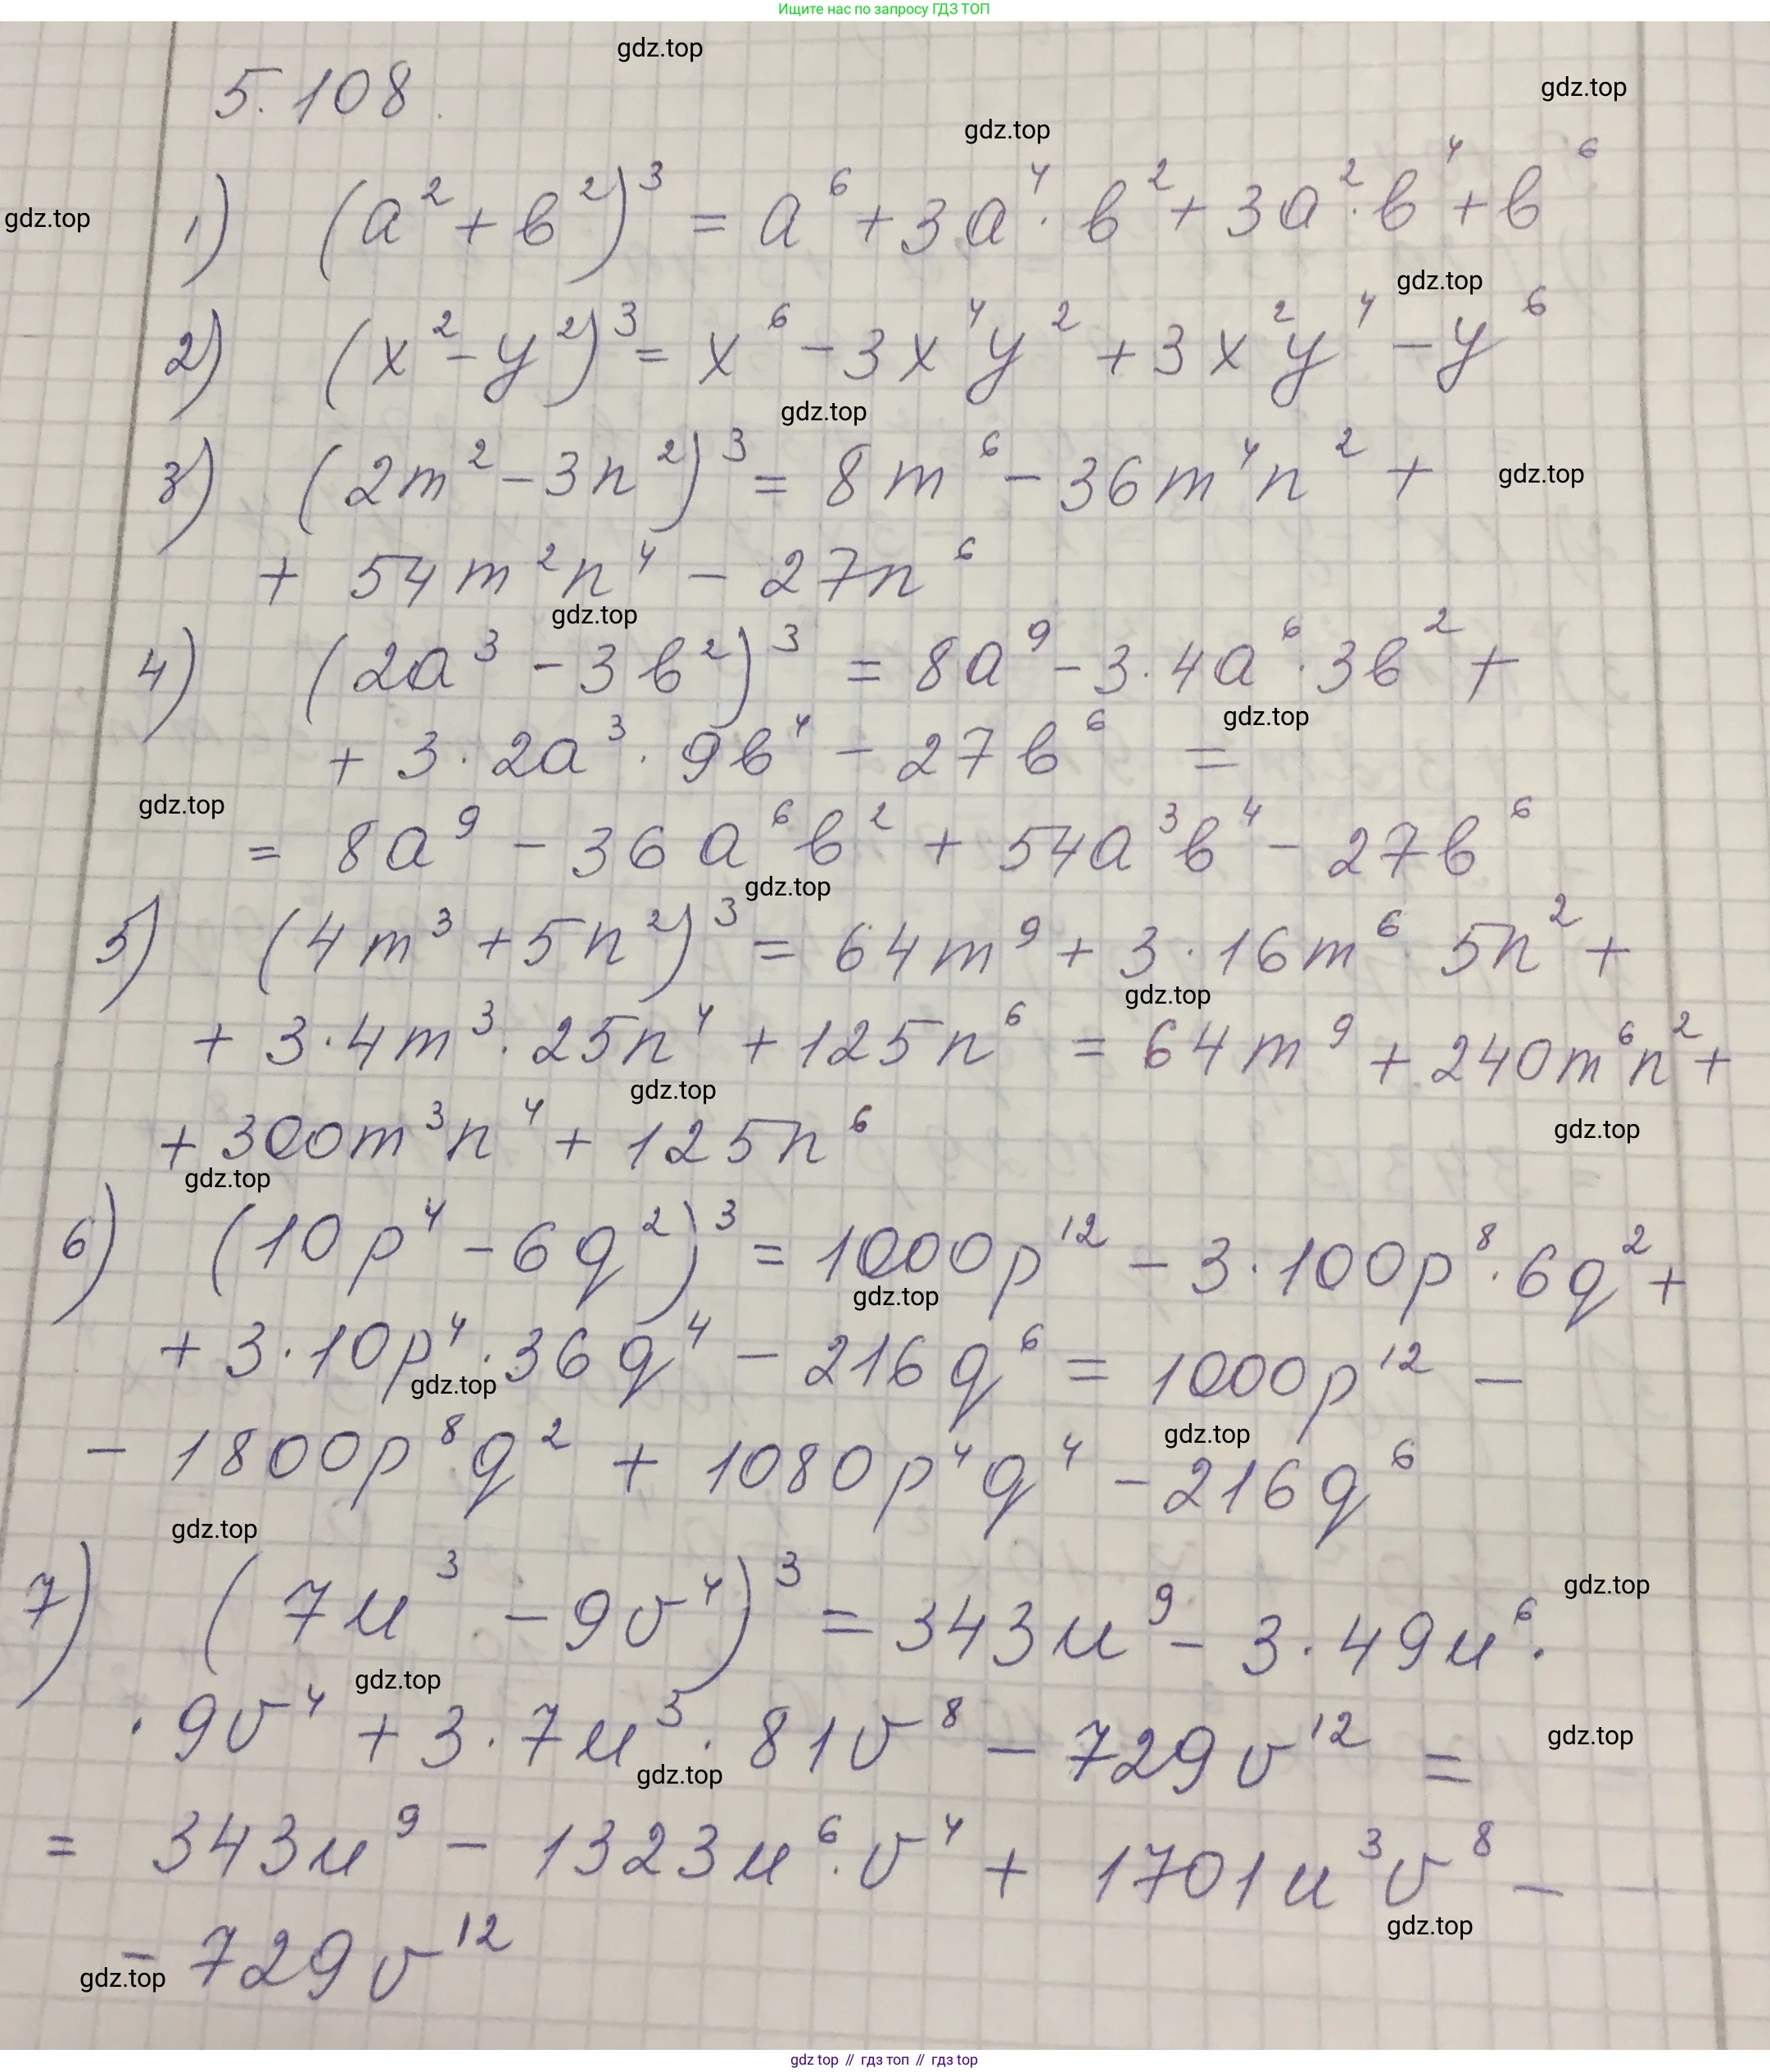 Ищите нас по запросу ГДЗ ТОП
gdz.top
5.108.
gdz.top
gdz.top
gdz.top
1) (a² + b²)³ = a⁶ + 3a⁴ · b² + 3a² · b⁴ + b⁶
gdz.top
2) (x² - y²)³ = x⁶ - 3x⁴y² + 3x²y⁴ - y⁶
gdz.top
3) (2m² - 3n²)³ = 8m⁶ - 36m⁴n² +
gdz.top
+ 54m²n⁴ - 27n⁶
gdz.top
4) (2a³ - 3b²)³ = 8a⁹ - 3·4a⁶·3b² +
gdz.top
+ 3·2a³·9b⁴ - 27b⁶ =
gdz.top
= 8a⁹ - 36a⁶b² + 54a³b⁴ - 27b⁶
gdz.top
5) (4m³ + 5n²)³ = 64m⁹ + 3·16m⁶ 5n² +
gdz.top
+ 3·4m³·25n⁴ + 125n⁶ = 64m⁹ + 240m⁶n² +
gdz.top
gdz.top
+ 300m³n⁴ + 125n⁶
gdz.top
6) (10p⁴ - 6q²)³ = 1000p¹² - 3·100p⁸·6q² +
gdz.top
+ 3·10p⁴·36q⁴ - 216q⁶ = 1000p¹² -
gdz.top
gdz.top
- 1800p⁸q² + 1080p⁴q⁴ - 216q⁶
gdz.top
gdz.top
7) (7u³ - 9v⁴)³ = 343u⁹ - 3·49u⁶·
gdz.top
·9v⁴ + 3·7u³·81v⁸ - 729v¹² =
gdz.top
gdz.top
= 343u⁹ - 1323u⁶·v⁴ + 1701u³v⁸ -
gdz.top
- 729v¹²
gdz.top
gdz top // гдз топ // гдз top